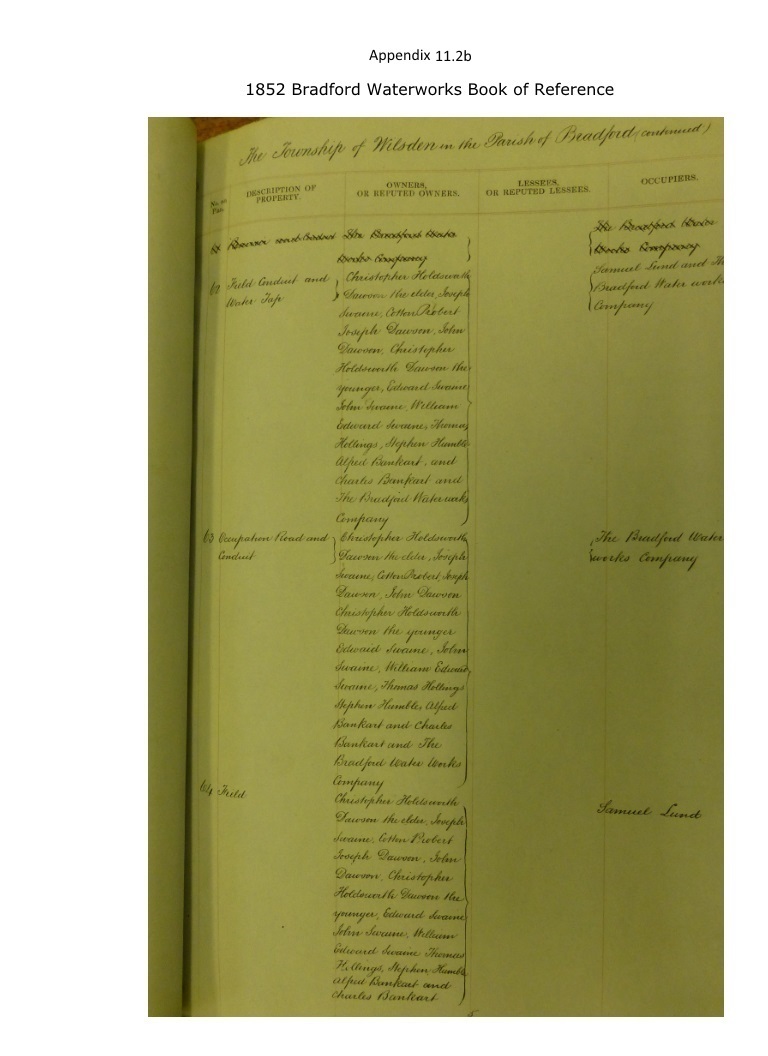 Appendix 11.2b
1852 Bradford Waterworks Book of Reference
The Township of Wilsden in the Parish of Bradford (continued)
No. on Plan.
DESCRIPTION OF PROPERTY.
OWNERS, OR REPUTED OWNERS.
LESSEES, OR REPUTED LESSEES.
OCCUPIERS.
The Bradford Water
Works Company
The Bradford Water
Works Company
Field Conduit and
Water Tap
Christopher Holdsworth
Dawson the elder, Joseph
Swaine, Cotton Probert
Joseph Dawson, John
Dawson, Christopher
Holdsworth Dawson the
younger, Edward Swaine
John Swaine, William
Edward Swaine, Thomas
Hollings, Stephen Humble
Alfred Bankart, and
Charles Bankart and
The Bradford Waterworks
Company
Samuel Lund and The
Bradford Water works
Company
63 Occupation Road and
Conduit
Christopher Holdsworth
Dawson the elder, Joseph
Swaine, Cotton Probert, Joseph
Dawson, John Dawson
Christopher Holdsworth
Dawson the younger
Edward Swaine, John
Swaine, William Edward
Swaine, Thomas Hollings
Stephen Humble, Alfred
Bankart and Charles
Bankart and The
Bradford Water Works
Company
The Bradford Water
works Company
64 Field
Christopher Holdsworth
Dawson the elder, Joseph
Swaine, Cotton Probert
Joseph Dawson, John
Dawson, Christopher
Holdsworth Dawson the
younger, Edward Swaine
John Swaine, William
Edward Swaine Thomas
Hollings, Stephen Humble
Alfred Bankart and
Charles Bankart
Samuel Lund